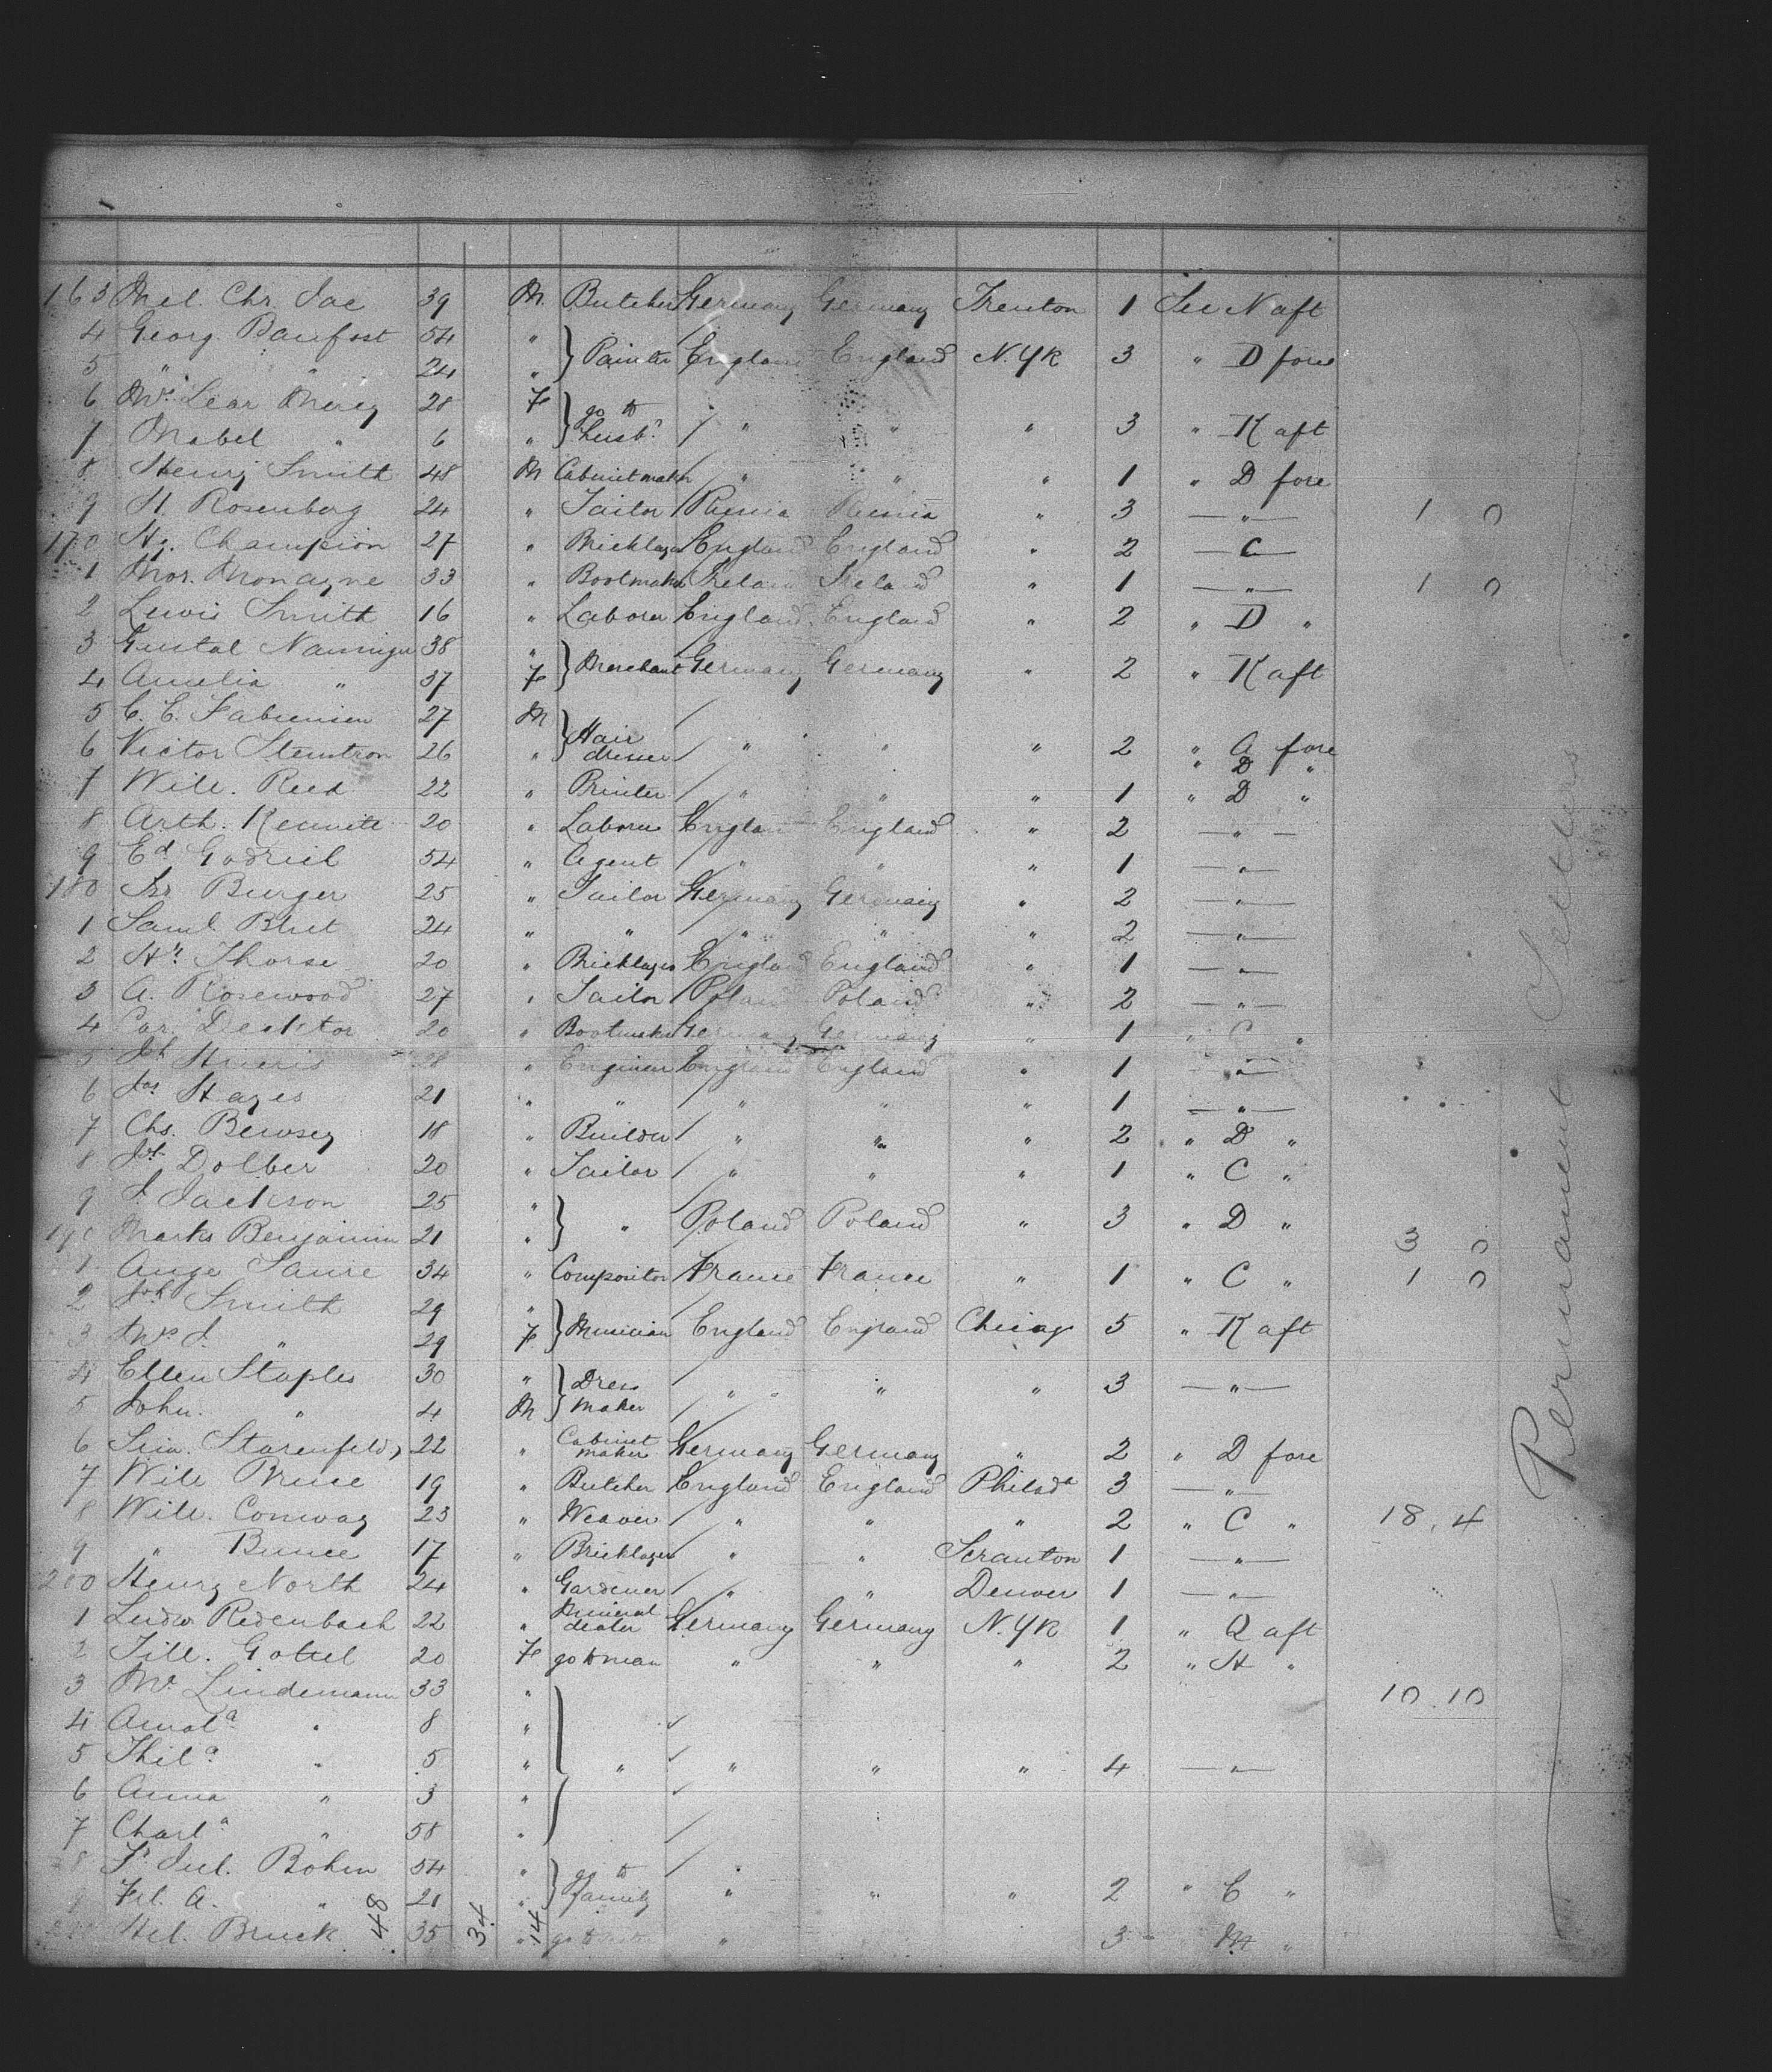 163 Mel. Chr. Jac 39 M. Butcher Germany Germany Trenton 1 Sec N aft
4 Georg. Bamfost 54 "
5 " " 24 " } Painter England England N. Yk 3 " D fore
6 Mrs. Lear Mercy 28 F
7 Mabel " 6 " } go to husbd. " " " 3 " K aft
8 Henry Smith 48 M Cabinetmaker " " " 1 " D fore
9 H. Rosenberg 24 " Tailor Russia Russia " 3 " 1 0
170 Hy. Champion 27 " Bricklayer England England " 2 C
1 Mor. Monagne 33 " Bootmaker Ireland Ireland " 1 " 1 0
2 Lewis Smith 16 " Laborer England England " 2 " D "
3 Gustal Nauninger 38 "
4 Amelia " 37 F } Merchant Germany Germany " 2 " K aft
5 C. C. 27 M
6 Victor Stemtron 26 " } Hair dresser " " " 2 " A fore
" D "
7 Will. Reed 22 " Printer " " " 1 " D "
8 Arth. 20 " Laborer England England " 2 "
9 Ed. 54 " Agent " " " 1 "
180 Isr Burger 25 " Tailor Germany Germany " 2 "
1 Saml. Blut 24 " " " " " 2 "
2 Hy. Thorse 20 " Bricklayer England England " 1 "
3 A. Rosewood 27 " Tailor Poland Poland " 2 "
4 Car. Deektor 20 " Bootmaker Germany Germany " 1 " C "
5 28 " Engineer England England " 1 "
6 Jas Hayes 21 " " " " " 1 "
7 Chs. Bewsey 18 " Builder " " " 2 " D "
8 Dolber 20 " Tailor " " " 1 " C "
9 J. Jackson 25 "
190 Marks Benjamin 21 " } " Poland Poland " 3 " D " 3 0
1 Auge Saure 34 " Compositor France France " 1 " C " 1 0
2 Joh Smith 29 "
3 Mrs J. " 29 F } Musician England England Chicag 5 " K aft
4 Ellen Staples 30 "
5 John. " 4 M } Dress maker " " " 3 "
6 Sim. Starenfeld 22 " Cabinet maker Germany Germany " 2 " D fore
7 Will Bruce 19 " Butcher England England Philada 3 "
8 Will. Conway 23 " Weaver " " " 2 " C " 18. 4
9 " Bunce 17 " Bricklayer " " Scranton 1 "
200 Henry North 24 " Gardener " " Denver 1 "
1 Ludw. Redenbach 22 " Mineral dealer Germany Germany N. Yk 1 " Q aft
2 Till. 20 F go to man " " " 2 " H "
3 Mr. Lindemann 33 " 10. 10
4 Amala " 8 "
5 Thila " 5 " " " " " 4 "
6 Anna " 3 "
7 Charla " 58 "
8 Fr. Jul. Bohm 54 "
9 Frl. A. " 21 " } go to family " " " 2 " C "
210 Hel. Bruck 35 " go to " 3 " M "
48 34 14
Permanent Settlers